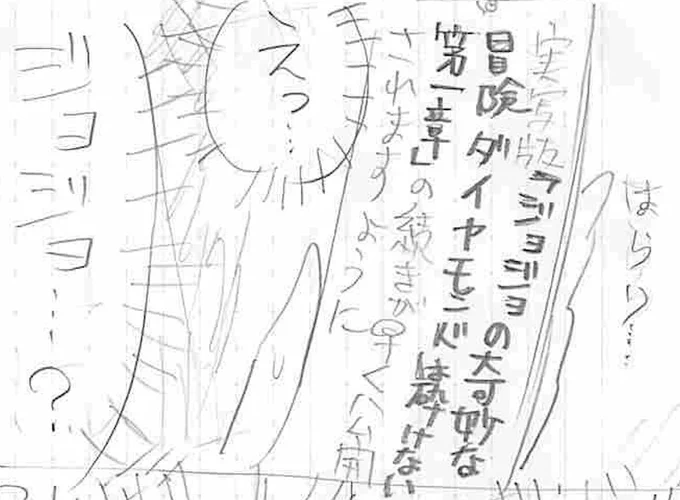 はらり…
実写版「ジョジョの奇妙な
冒険ダイヤモンドは砕けない
第一章」の続きが早く公開
されますように
えっ…
ジョジョ…?